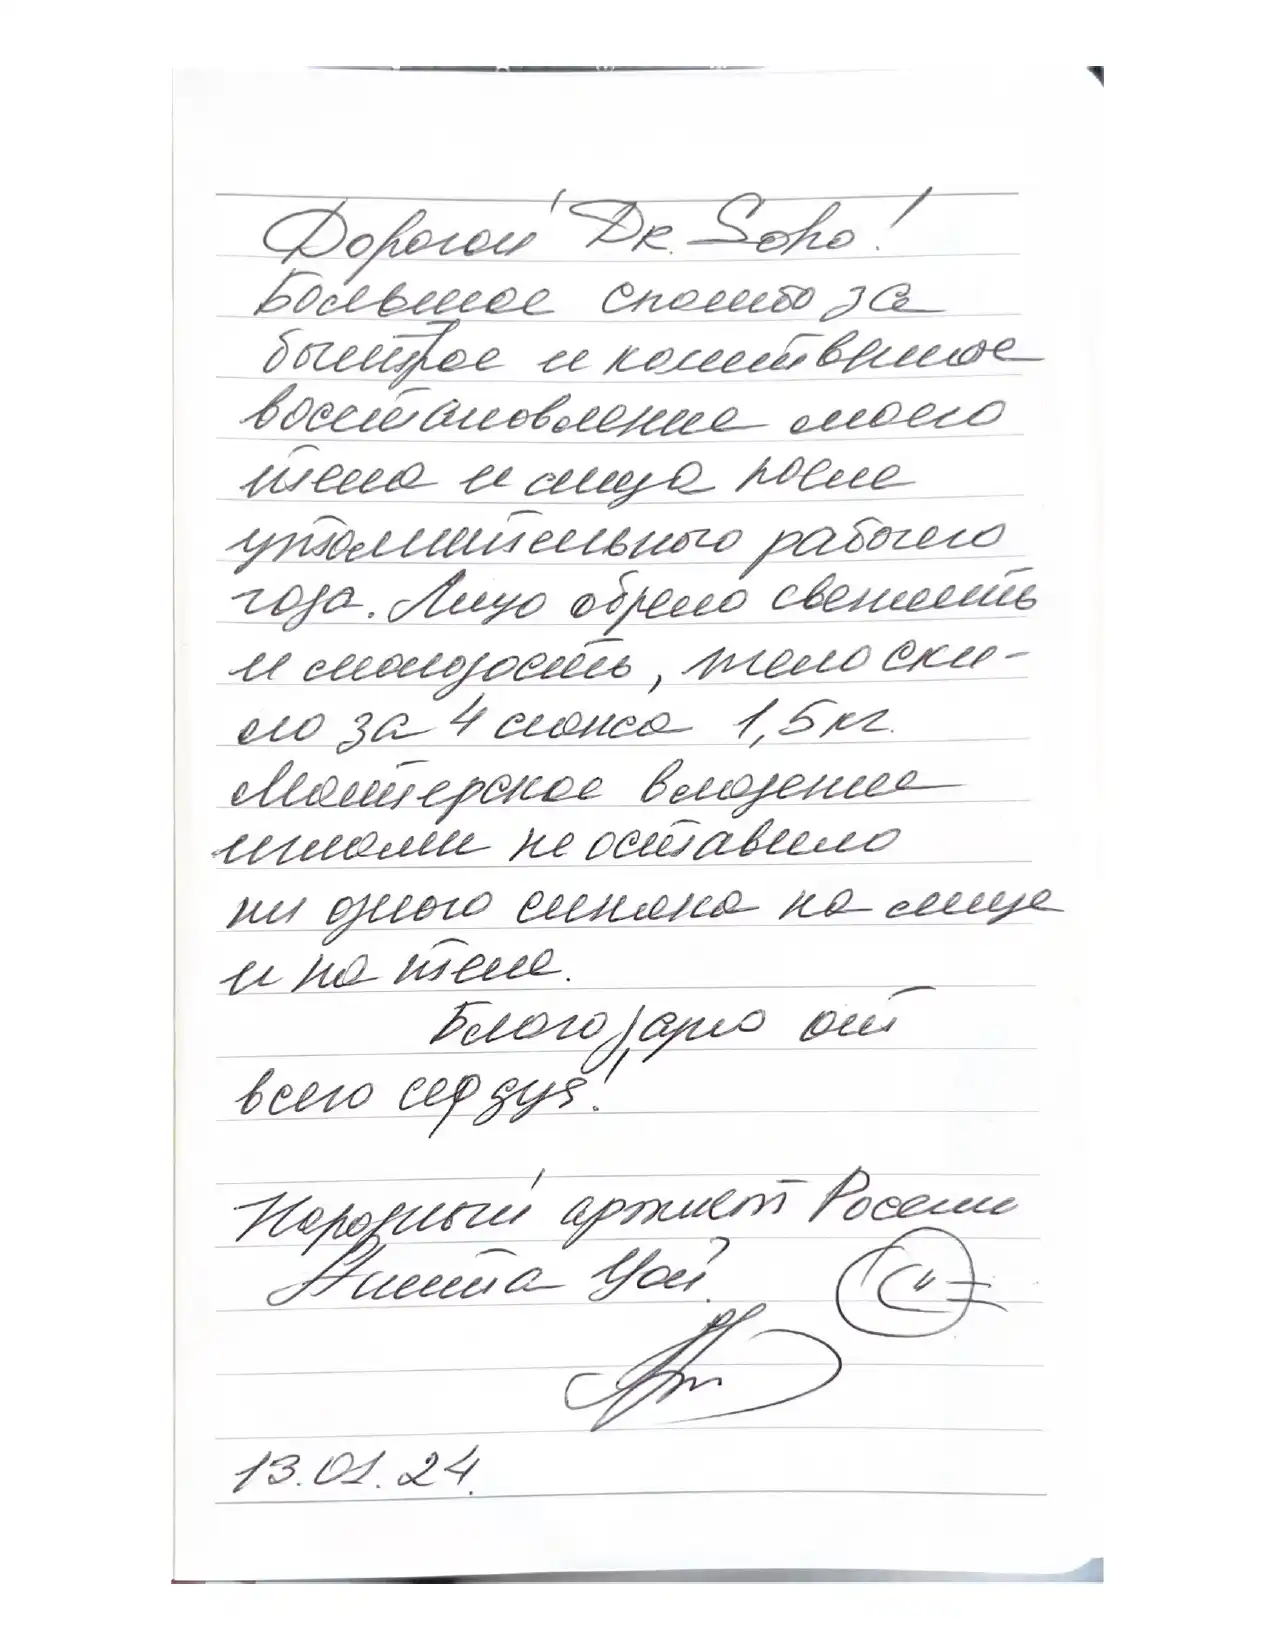 Дорогой Dr. Soho!
Большое спасибо за
быстрое и качественное
восстановление моего
тела и лица после
утомительного рабочего
года. Лицо обрело свежесть
и молодость, тело ски-
ло за 4 сеанса 1,5 кг.
Мастерское владение
иглами не оставило
ни одного синяка на лице
и на теле.
Благодарю от
всего сердца!
Народный артист России
Анита Цой.
13.01.24.